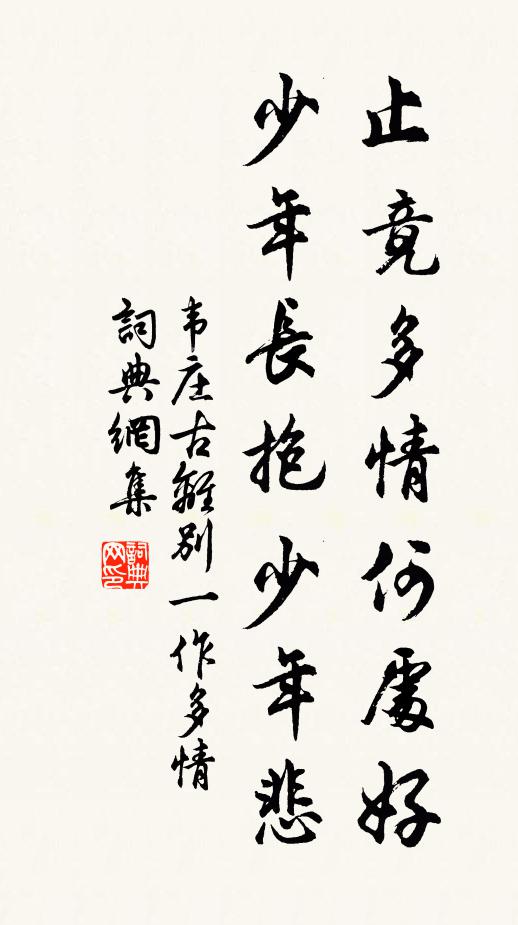 止竟多情何處好
少年長抱少年悲
韦庄古離別一作多情
詞典網集
詞典网印